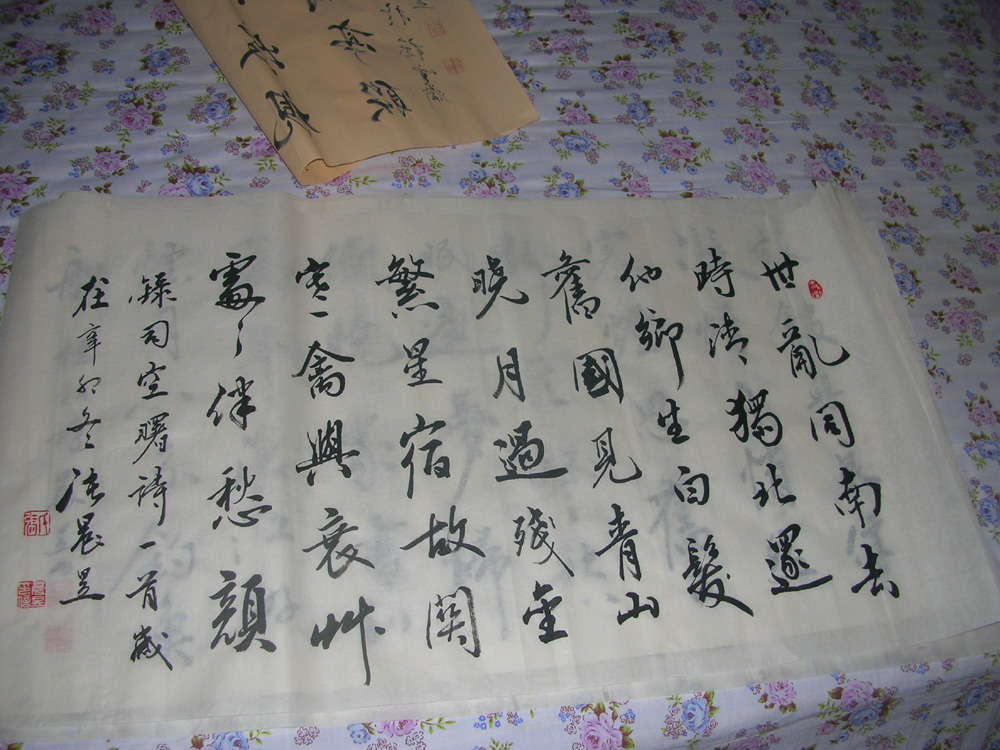 世亂同南去
時清獨北還
他鄉生白髮
舊國見青山
曉月過殘垒
繁星宿故関
寒禽與衰艸
處々伴愁顏
錄司空曙詩一首歲
在辛卯冬